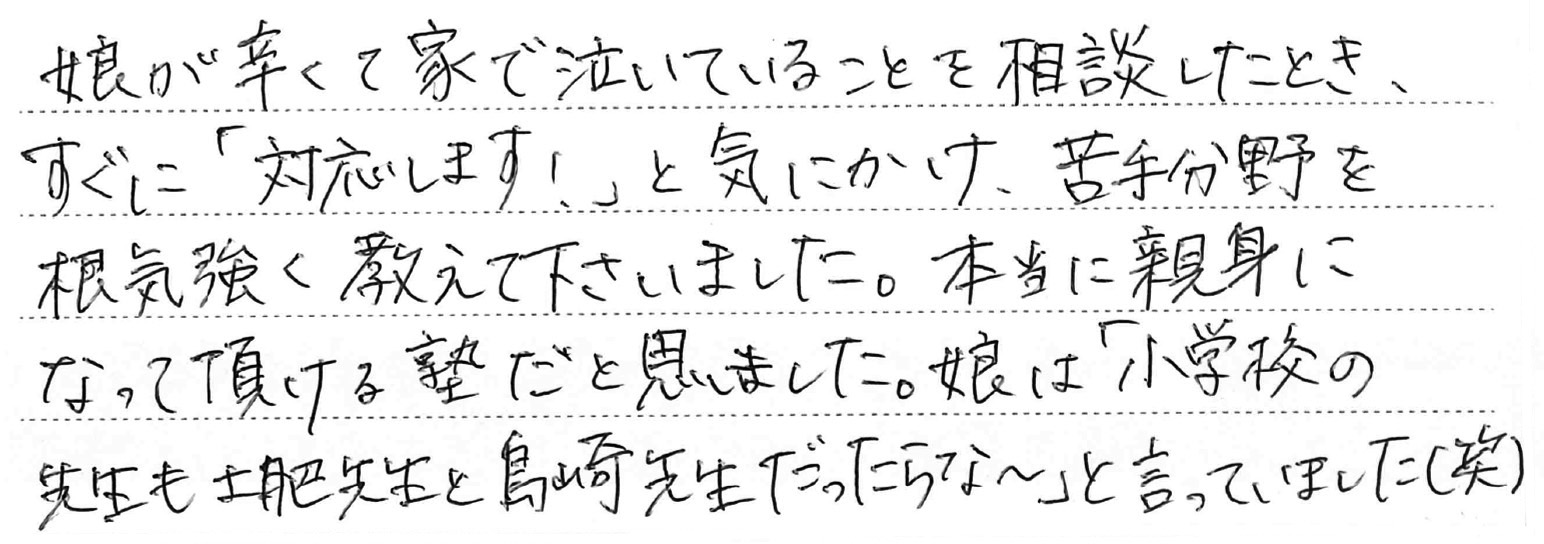 娘が辛くて家で泣いていることを相談したとき、
すぐに「対応します!」と気にかけ、苦手分野を
根気強く教えて下さいました。本当に親身に
なって頂ける塾だと思いました。娘は「小学校の
先生も土肥先生と島崎先生だったらな〜」と言っていました(笑)